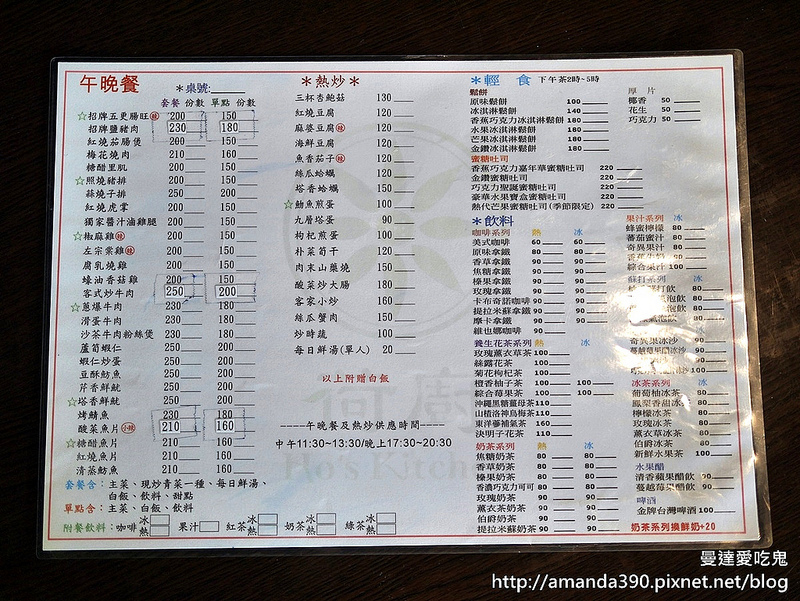 午晚餐
＊桌號:
套餐 份數 單點 份數
☆招牌五更腸旺 辣 200 150
招牌鹽豬肉 230 180
紅燒茄腸煲 200 150
梅花燒肉 210 160
糖醋里肌 200 150
☆照燒豬排 200 150
蒜燒子排 250 200
紅燒虎掌 200 150
獨家醬汁滷雞腿 200 150
☆椒麻雞 辣 200 150
左宗棠雞 辣 200 150
腐乳燒雞 200 150
蠔油香菇雞 200 150
客式炒牛肉 250 200
☆蔥爆牛肉 230 180
滑蛋牛肉 230 180
沙茶牛肉粉絲煲 230 180
蘆筍蝦仁 250 200
蝦仁炒蛋 250 200
豆酥魴魚 250 200
芹香鮮魷 250 200
☆塔香鮮魷 250 200
烤鯖魚 230 180
酸菜魚片 小辣 210 160
☆糖醋魚片 210 160
紅燒魚片 210 160
清蒸魴魚 250 200
套餐含：主菜、現炒青菜一種、每日鮮湯、
白飯、飲料、甜點
單點含：主菜、白飯、飲料
附餐飲料:咖啡 冰 熱 果汁 紅茶 冰 熱 奶茶 冰 熱 綠茶 冰 熱
＊熱炒＊
三杯杏鮑菇 130
紅燒豆腐 120
麻婆豆腐 辣 120
海鮮豆腐 120
魚香茄子 辣 120
絲瓜蛤蠣 120
塔香蛤蠣 150
☆魩魚煎蛋 100
九層塔蛋 90
枸杞煎蛋 100
朴菜筍干 120
肉末山藥燒 150
酸菜炒大腸 180
客家小炒 160
絲瓜蟹肉 150
炒時蔬 100
每日鮮湯(單人) 20
以上附贈白飯
----午晚餐及熱炒供應時間----
中午11:30~13:30/晚上17:30~20:30
Ho's Kitchen
＊輕 食 下午茶2時~5時
鬆餅
原味鬆餅 100
冰淇淋鬆餅 140
香蕉巧克力冰淇淋鬆餅 180
水果冰淇淋鬆餅 180
芒果冰淇淋鬆餅 180
金鑽冰淇淋鬆餅 180
厚 片
椰香 50
花生 50
巧克力 50
蜜糖吐司
香蕉巧克力嘉年華蜜糖吐司 220
金鑽蜜糖吐司 220
巧克力聖誕蜜糖吐司 220
豪華水果寶盒蜜糖吐司 220
熱代芒果蜜糖吐司(季節限定) 220
＊飲料
咖啡系列 熱 冰
美式咖啡 60 60
原味拿鐵 80 80
香草拿鐵 90 90
焦糖拿鐵 90 90
榛果拿鐵 90 90
玫瑰拿鐵 90 90
卡布奇諾咖啡 90 90
提拉米蘇拿鐵 90 90
摩卡拿鐵 90 90
維也娜咖啡 90
養生花茶系列 熱 冰
玫瑰薰衣草茶 100
絲露花茶 100
菊花枸杞茶 100
橙香柚子茶 100 100
綜合莓果茶 100 100
沖繩黑糖薑母茶 110
山楂洛神烏梅茶 110
東洋蔘補氣茶 160
決明子花茶 110
奶茶系列 熱 冰
焦糖奶茶 80 80
香草奶茶 80 80
榛果奶茶 80 80
香濃巧克力可可 80 80
玫瑰奶茶 90 90
薰衣茶奶茶 90 90
伯爵奶茶 90 90
提拉米蘇奶茶 90 90
果汁系列 冰
蜂蜜檸檬 80
蕃茄蜜汁 80
奇異果汁 80
香蕉牛奶 90
綜合果汁 100
蘇打系列 冰
奇異果冰沙
蔓越莓果冰沙
冰茶系列 冰
葡萄柚冰茶 80
鳳梨香甜冰茶 80
檸檬冰茶 80
玫瑰冰茶 80
薰衣草冰茶 80
伯爵冰茶 80
新鮮水果茶 100
水果醋
清香蘋果醋飲 90
蔓越莓果醋飲 90
啤酒
金牌台灣啤酒 100
奶茶系列換鮮奶+20
曼達愛吃鬼
http://amanda390.pixnet.net/blog